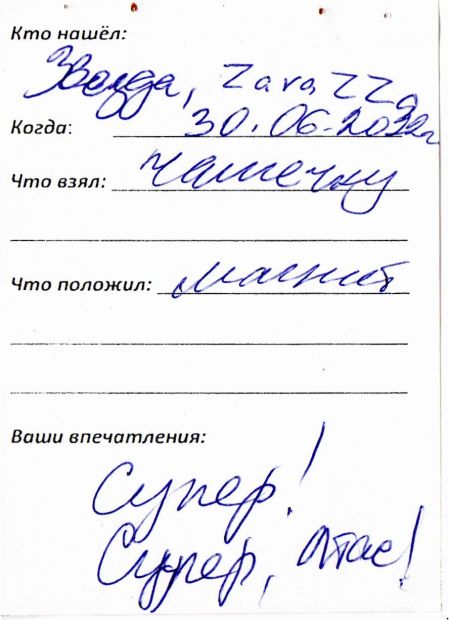 Кто нашёл:
Звезда, ZaraZZa
Когда: 30.06.
Что взял: чашечку
Что положил: магнит
Ваши впечатления:
Супер!
Супер, Атас!